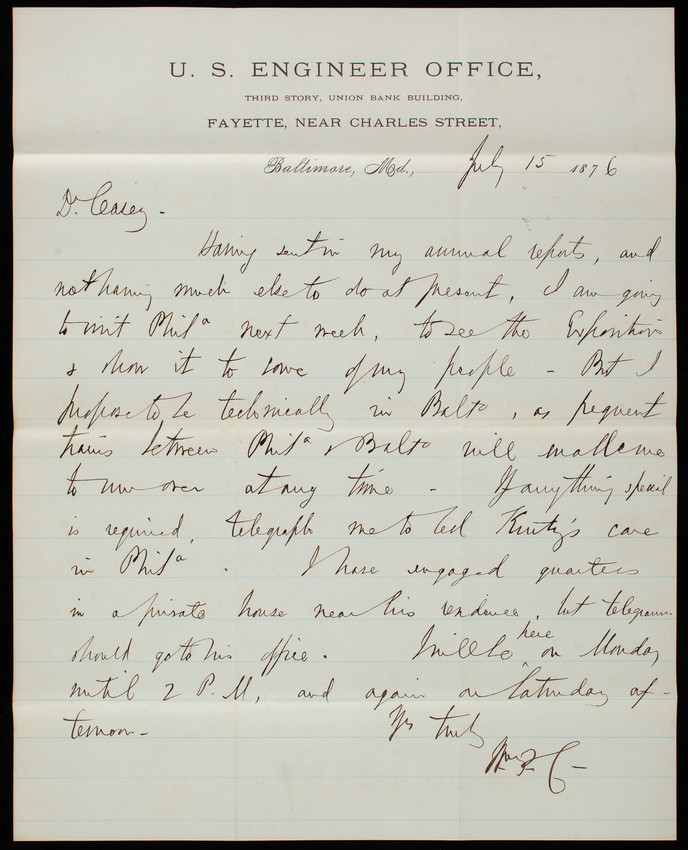 U. S. ENGINEER OFFICE,
THIRD STORY, UNION BANK BUILDING,
FAYETTE, NEAR CHARLES STREET,
Baltimore, Md., July 15 1876
Dr. Casey -
Having sent in my annual reports, and
not having much else to do at present, I am going
to visit Phila next week, to see the Exposition
& show it to some of my people - But I
propose to be technically in Balto, as frequent
trains between Phila & Balto will enable me
to run over at any time - If anything special
is required, telegraph me to Col Kurtz's care
in Phila. I have engaged quarters
in a private house near his residence, but telegrams
should go to his office. I will be here on Monday
until 2 P.M, and again on Saturday af-
ternoon -
Yrs truly
Wm P C -